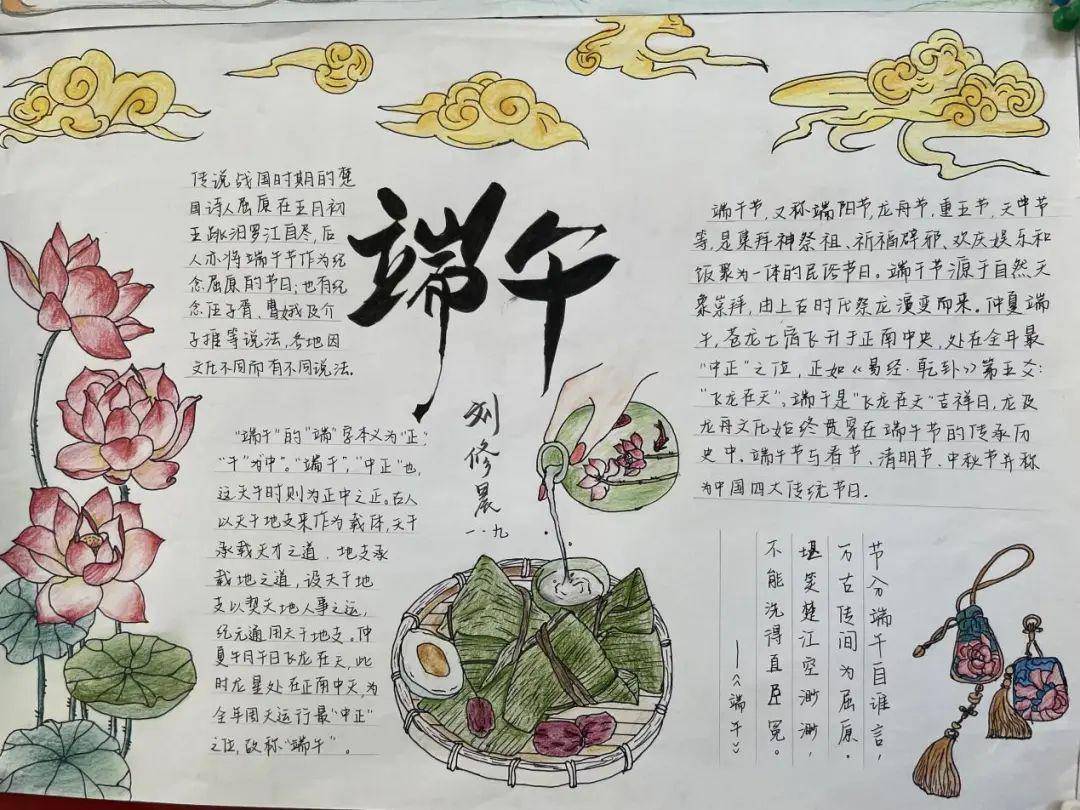 端午
刘修晨
一.九
传说战国时期的楚
国诗人屈原在五月初
五跳汨罗江自尽,后
人亦将端午节作为纪
念屈原的节日;也有纪
念伍子胥、曹娥及介
子推等说法,各地因
文化不同而有不同说法。
“端午”的“端”字本义为“正”,
“午”为“中”。“端午”,“中正”也,
这天午时则为正中之正。古人
以天干地支来作为载体,天干
承载天才之道,地支承
载地之道,设天干地
支以契天地人事之运,
纪元通用天干地支。仲
夏午月午日飞龙在天,此
时龙星处在正南中天,为
全年周天运行最“中正”
之位,故称“端午”。
端午节,又称端阳节,龙舟节,重五节,天中节
等,是集拜神祭祖、祈福辟邪、欢庆娱乐和
饭聚为一体的民俗节日。端午节源于自然天
象崇拜,由上古时代祭龙演变而来。仲夏端
午,苍龙七宿飞升于正南中央,处在全年最
“中正”之位,正如《易经·乾卦》第五爻:
“飞龙在天”。端午是“飞龙在天”吉祥日,龙及
龙舟文化始终贯穿在端午节的传承历
史中。端午节与春节、清明节、中秋节并称
为中国四大传统节日.
节分端午自谁言,
万古传间为屈原。
堪笑楚江空渺渺,
不能洗得直臣冤。
——《端午》